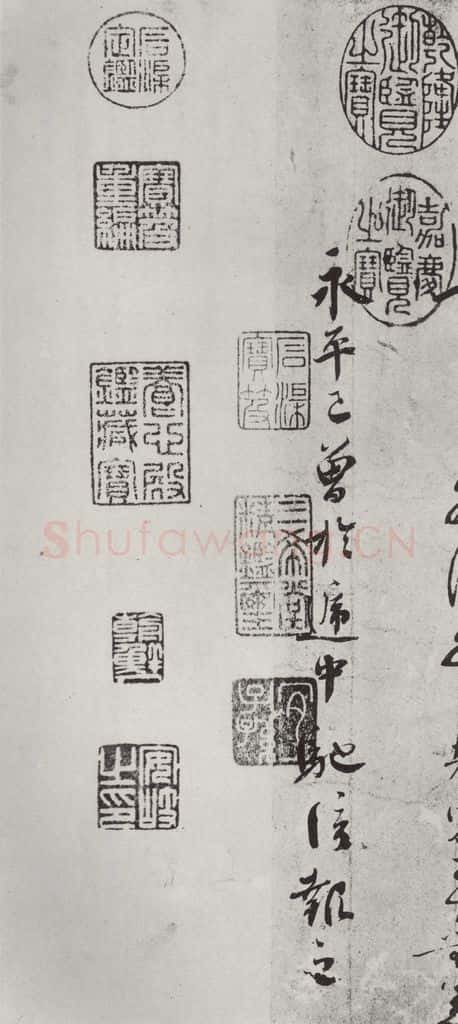 乾隆御覽之寶
嘉慶御覽之寶
永平已曾於遞中馳信報之
石渠寶笈
三希堂精鑑璽
宜子孫
石渠定鑑
寶笈重編
養心殿鑑藏寶
朝鮮
安岐之印
Shufawang.CN